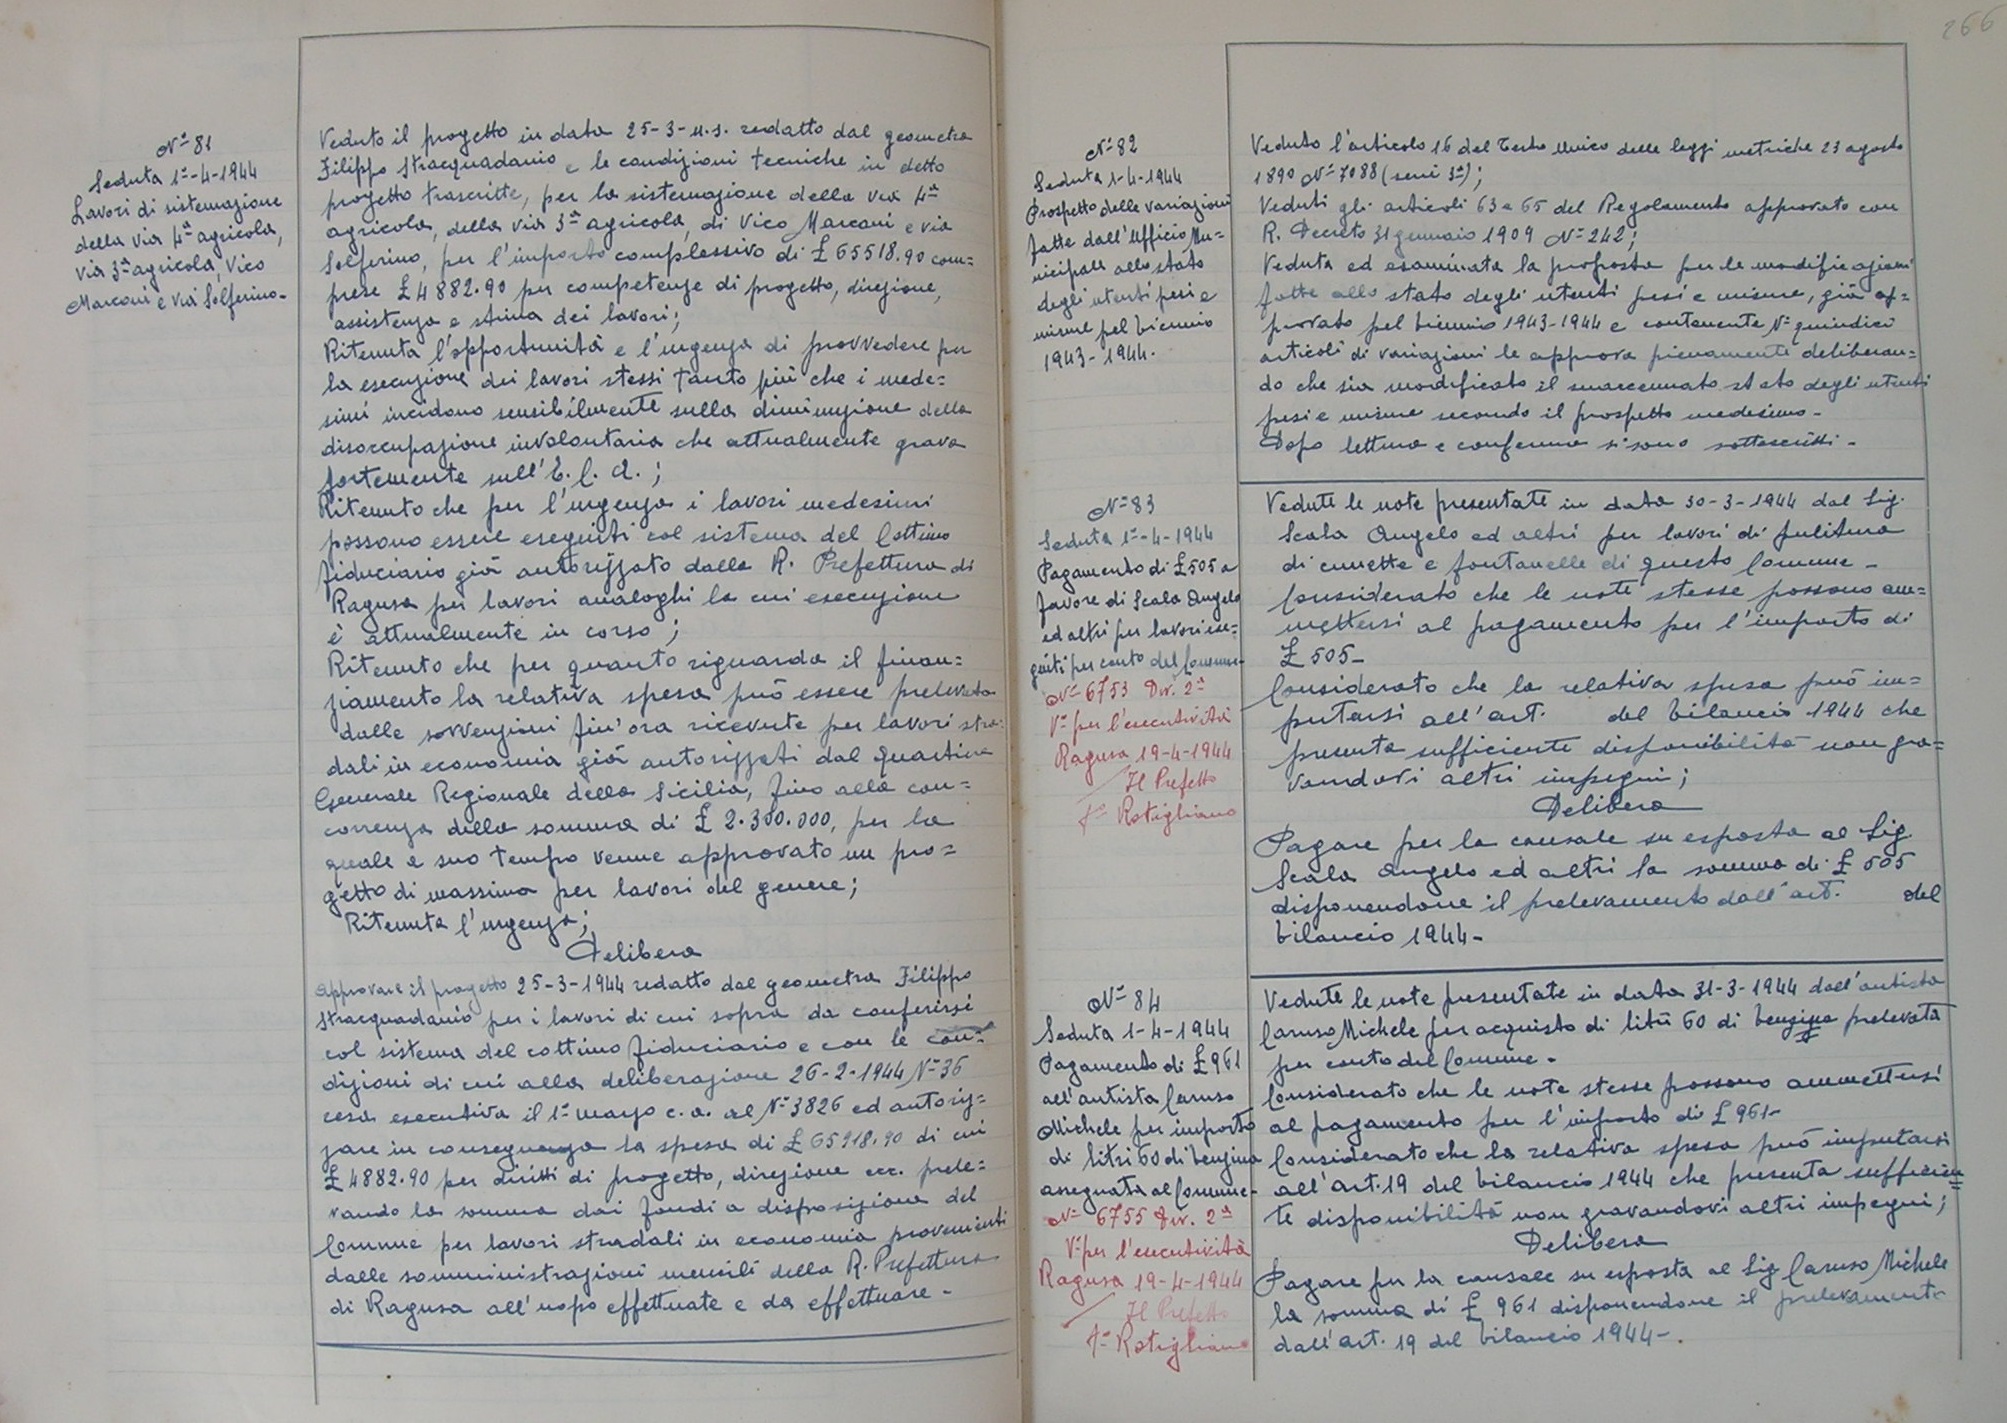 N° 81
Seduta 1°-4-1944
Lavori di sistemazione
della via 4ª agricola,
via 3ª agricola, Vico
Marconi e via Solferino-
Veduto il progetto in data 25-3-u.s. redatto dal geometra
Filippo Stracquadanio e le condizioni tecniche in detto
progetto trascritte, per la sistemazione della via 4ª
agricola, della via 3ª agricola, di Vico Marconi e via
Solferino, per l'importo complessivo di £ 65518.90 com=
prese £ 4882.90 per competenze di progetto, direzione,
assistenza e stima dei lavori;
Ritenuta l'opportunità e l'urgenza di provvedere per
la esecuzione dei lavori stessi tanto più che i mede=
simi incidono sensibilmente sulla diminuzione della
disoccupazione involontaria che attualmente grava
fortemente sull'E.C.A.;
Ritenuto che per l'urgenza i lavori medesimi
possono essere eseguiti col sistema del Cottimo
fiduciario già autorizzato dalla R. Prefettura di
Ragusa per lavori analoghi la cui esecuzione
è attualmente in corso;
Ritenuto che per quanto riguarda il finan=
ziamento la relativa spesa può essere prelevata
dalle sovvenzioni fin'ora ricevute per lavori stra=
dali in economia già autorizzati dal Quartier
Generale Regionale della Sicilia, fino alla con=
correnza della somma di £ 2.300.000, per la
quale a suo tempo venne approvato un pro=
getto di massima per lavori del genere;
Ritenuta l'urgenza;
Delibera
Approvare il progetto 25-3-1944 redatto dal geometra Filippo
Stracquadanio per i lavori di cui sopra da conferirsi
col sistema del cottimo fiduciario e con le con=
dizioni di cui alla deliberazione 26-2-1944 N° 36
resa esecutiva il 1° marzo c.a. al N° 3826 ed autoriz=
zare in conseguenza la spesa di £ 65918.90 di cui
£ 4882.90 per diritti di progetto, direzione ecc. prele=
vando la somma dai fondi a disposizione del
Comune per lavori stradali in economia provenienti
dalle somministrazioni mensili della R. Prefettura
di Ragusa all'uopo effettuate e da effettuare -
266
N° 82
Seduta 1-4-1944
Prospetto delle variazioni
fatte dall'Ufficio Mu=
nicipale allo stato
degli utenti pesi e
misure pel biennio
1943-1944.
Veduto l'articolo 16 del Testo Unico delle leggi metriche 23 agosto
1890 N° 7088 (serie 3ª);
Veduti gli articoli 63 e 65 del Regolamento approvato con
R. Decreto 31 gennaio 1909 N° 242;
Veduta ed esaminata la proposta per le modificazioni
fatte allo stato degli utenti pesi e misure, già ap=
provato pel biennio 1943-1944 e contenente N° quindici
articoli di variazioni le approva pienamente deliberan=
do che sia modificato il suaccennato stato degli utenti
pesi e misure secondo il prospetto medesimo -
Dopo lettura e conferma si sono sottoscritti -
N° 83
Seduta 1°-4-1944
Pagamento di £ 505 a
favore di Scala Angelo
ed altri per lavori ese=
guiti per conto del Comune-
N° 6753 Div. 2ª
V° per l'esecutività
Ragusa 19-4-1944
Il Prefetto
f° Rotigliano
Vedute le note presentate in data 30-3-1944 dal Sig.
Scala Angelo ed altri per lavori di pulitura
di cunette e fontanelle di questo Comune -
Considerato che le note stesse possono am=
mettersi al pagamento per l'importo di
£ 505-
Considerato che la relativa spesa può im=
putarsi all'art. del bilancio 1944 che
presenta sufficiente disponibilità non gra=
vandovi altri impegni;
Delibera
Pagare per la causale su esposta al Sig.
Scala Angelo ed altri la somma di £ 505
disponendone il prelevamento dall'art. del
bilancio 1944-
N° 84
Seduta 1-4-1944
Pagamento di £ 961
all'autista Caruso
Michele per importo
di litri 60 di benzina
assegnata al Comune-
N° 6755 Div. 2ª
V° per l'esecutività
Ragusa 19-4-1944
Il Prefetto
f° Rotigliano
Vedute le note presentate in data 31-3-1944 dall'autista
Caruso Michele per acquisto di litri 60 di benzina prelevata
per conto del Comune -
Considerato che le note stesse possono ammettersi
al pagamento per l'importo di £ 961-
Considerato che la relativa spesa può imputarsi
all'art. 19 del bilancio 1944 che presenta sufficien=
te disponibilità non gravandovi altri impegni;
Delibera
Pagare per la causale su esposta al Sig. Caruso Michele
la somma di £ 961 disponendone il prelevamento
dall'art. 19 del bilancio 1944-.